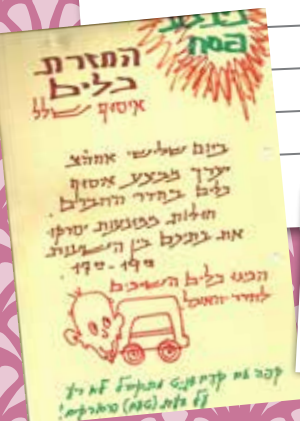 מבצע
פסח
החזרת
כלים
איסוף שלל
ביום שלישי אחה"צ
יערך מבצע איסוף
כלים בחדר החברים.
חוליות ממונעות יסרקו
את בתיכם בין השעות
הכינו כלים השייכים
לחדר האוכל
קפה עם
לא רע